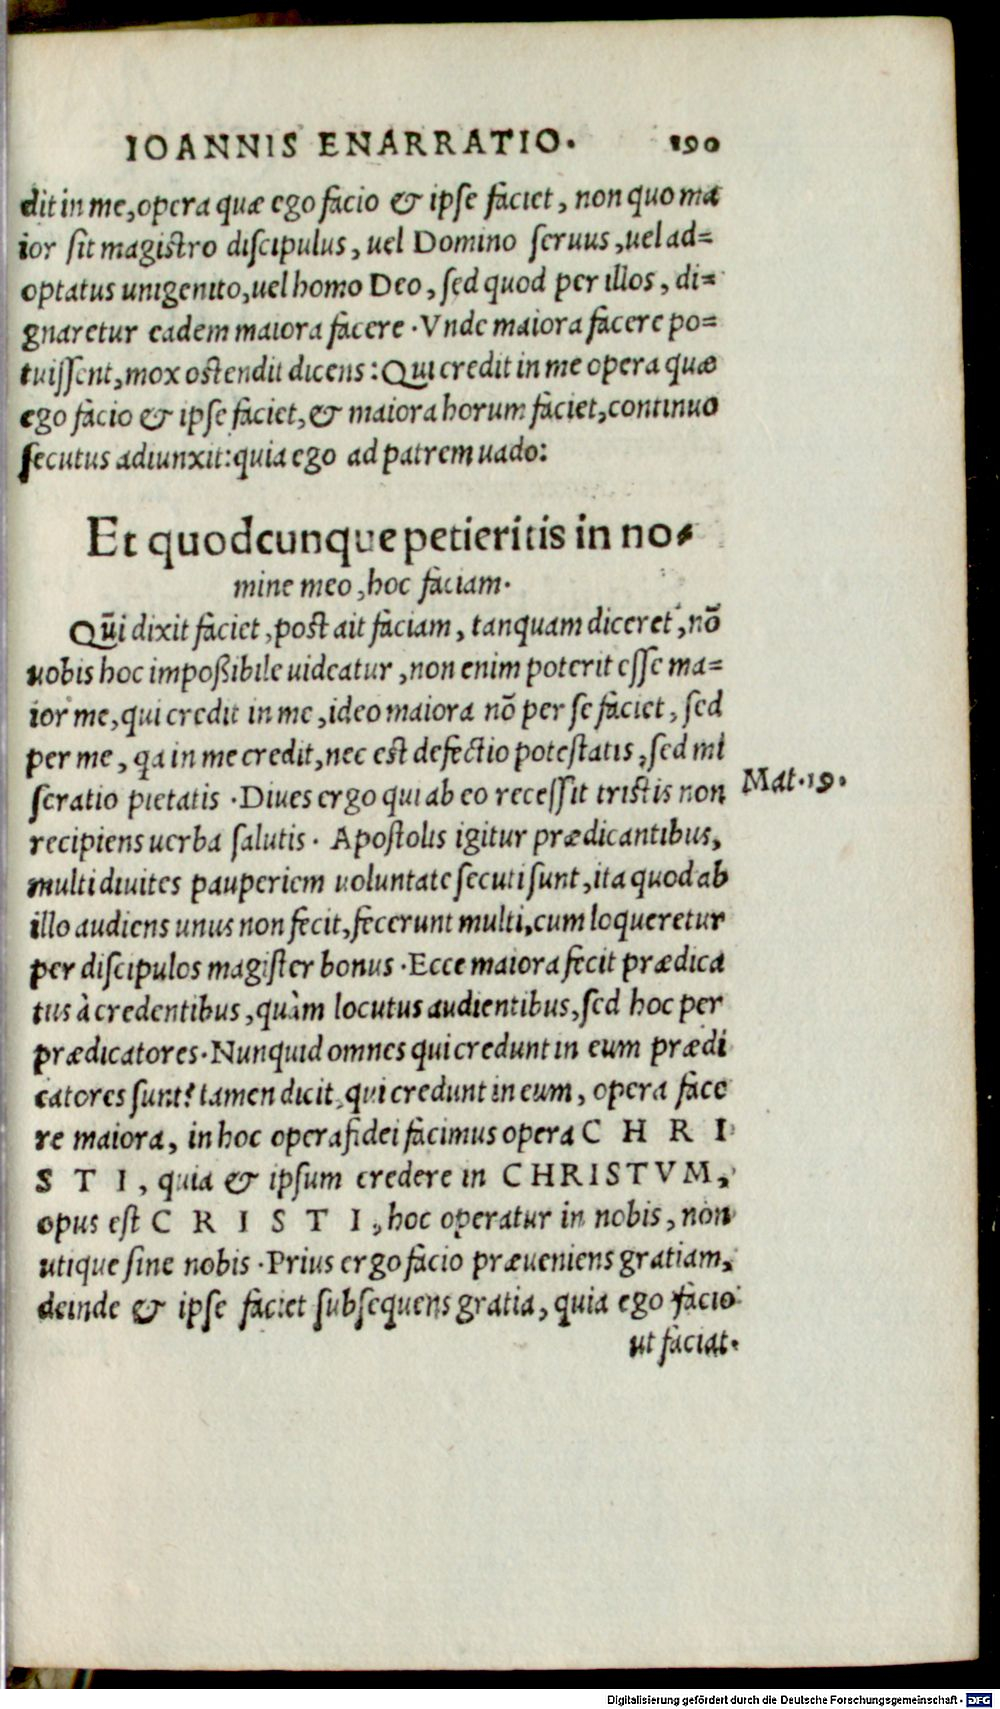 IOANNIS ENARRATIO. 190
dit in me, opera quæ ego facio & ipse faciet, non quo ma
ior sit magistro discipulus, uel Domino seruus, uel ad=
optatus unigenito, uel homo Deo, sed quod per illos, di=
gnaretur eadem maiora facere. Vnde maiora facere po=
tuissent, mox ostendit dicens: Qui credit in me opera quæ
ego facio & ipse faciet, & maiora horum faciet, continuo
secutus adiunxit: quia ego ad patrem uado:
Et quodcunque petieritis in no=
mine meo, hoc faciam.
Qui dixit faciet, post ait faciam, tanquam diceret, nō
uobis hoc impoßibile uideatur, non enim poterit esse ma=
ior me, qui credit in me, ideo maiora nō per se faciet, sed
per me, qa in me credit, nec est defectio potestatis, sed mi
seratio pietatis. Diues ergo qui ab eo recessit tristis non
Mat. 19.
recipiens uerba salutis. Apostolis igitur prædicantibus,
multi diuites pauperiem uoluntate secuti sunt, ita quod ab
illo audiens unus non fecit, fecerunt multi, cum loqueretur
per discipulos magister bonus. Ecce maiora fecit prædica
tus à credentibus, quàm locutus audientibus, sed hoc per
prædicatores. Nunquid omnes qui credunt in eum prædi
catores sunt? tamen dicit, qui credunt in eum, opera face
re maiora, in hoc opera fidei facimus opera C H R I
S T I, quia & ipsum credere in CHRISTVM,
opus est C R I S T I, hoc operatur in nobis, non
utique sine nobis. Prius ergo facio præueniens gratiam,
deinde & ipse faciet subsequens gratia, quia ego facio
ut faciat.
Digitalisierung gefördert durch die Deutsche Forschungsgemeinschaft - DFG